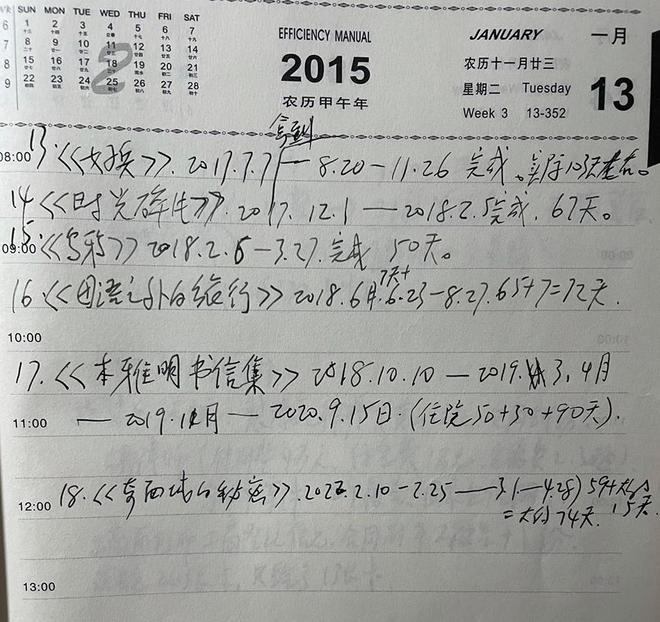 SUN MON TUE WED THU FRI SAT
6 1 2 3 4 5 6 7
7 8 9 10 11 12 13 14
8 15 16 17 18 19 20 21
9 22 23 24 25 26 27 28
2
EFFICIENCY MANUAL
2015
农历甲午年
JANUARY 一月
农历十一月廿三
星期二 Tuesday
Week 3 13-352
13
拿到
08:00 13.<<女孩>>. 2017.7.7 — 8.20 — 11.26 完成。实际103天左右。
14.<<时光碎片>>. 2017.12.1 — 2018.2.5完成. 67天。
09:00 15.<<乌鸦>> 2018.2.6 — 3.27.完成 50天。
7天+
16.<<国语之外的旅行>> 2018.6月.6.23 — 8.27.65+7=72天.
10:00
17.<<本雅明书信集>> 2018.10.10 — 2019. 3,4月
11:00 — 2019.11月 — 2020.9.15日.(住院50+30+90天).
12:00 18.<< >>. 2022.2.10 — 2.25 — 3.1 — 4.28) 59+
=大约74天. 15天.
13:00